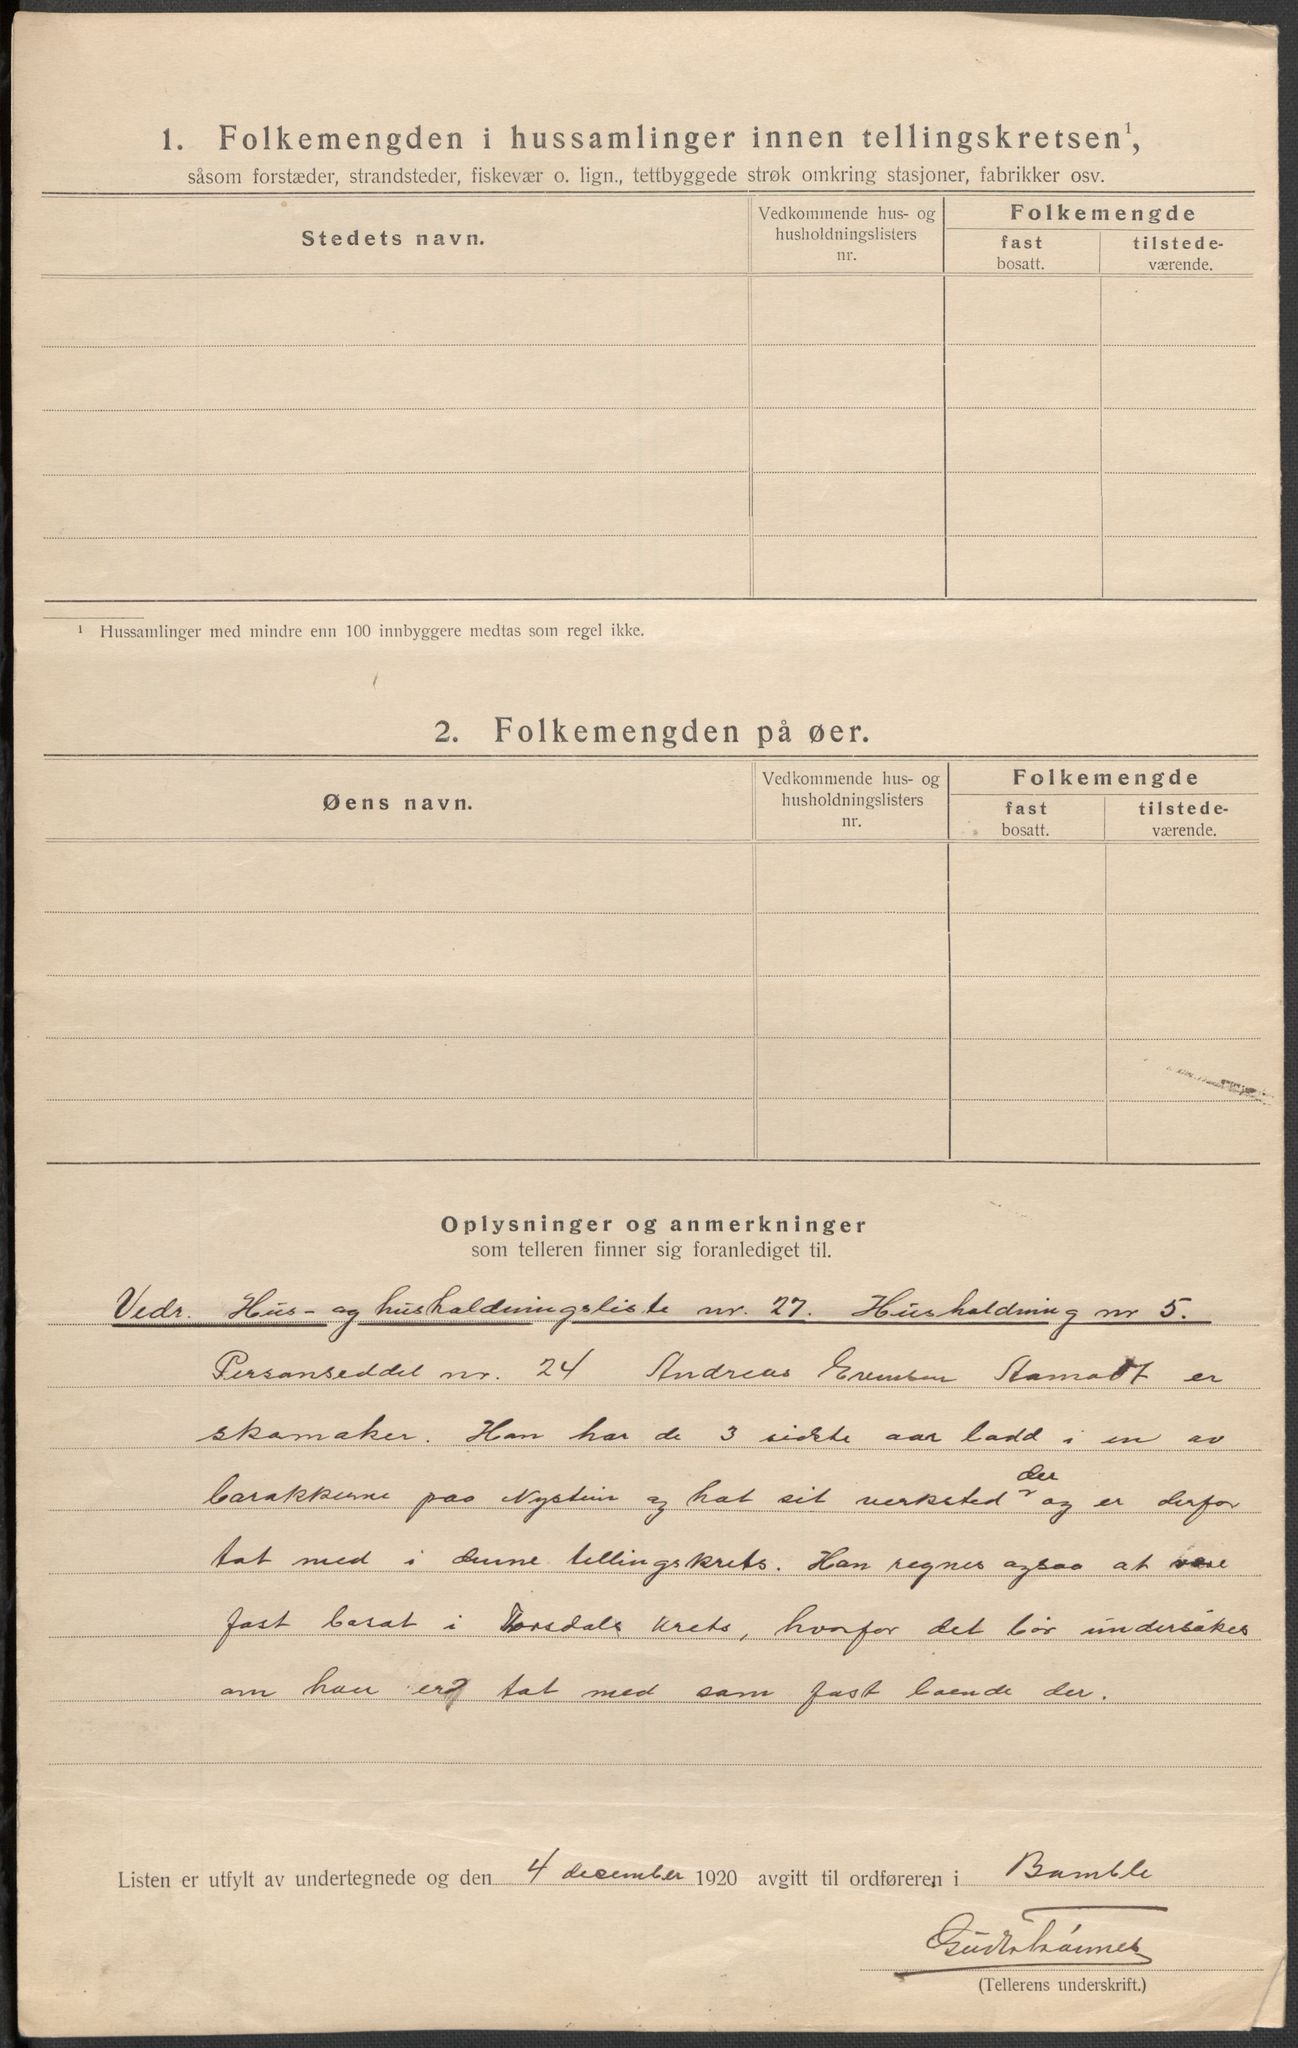 1. Folkemengden i hussamlinger innen tellingskretsen¹,
såsom forstæder, strandsteder, fiskevær o. lign., tettbyggede strøk omkring stasjoner, fabrikker osv.
Stedets navn.
Vedkommende hus- og
husholdningslisters
nr.
Folkemengde
fast
bosatt.
tilstede-
værende.
¹ Hussamlinger med mindre enn 100 innbyggere medtas som regel ikke.
2. Folkemengden på øer.
Øens navn.
Vedkommende hus- og
husholdningslisters
nr.
Folkemengde
fast
bosatt.
tilstede-
værende.
Oplysninger og anmerkninger
som telleren finner sig foranlediget til.
Vedr. Hus- og husholdningsliste nr. 27. Husholdning nr 5.
Personseddel nr. 24 Andreas Evensen Aamodt er
skomaker. Han har de 3 sidste aar bodd i en av
barakkerne paa Nystein og hat sit verksted der og er derfor
tat med i denne tellingskrets. Han regnes ogsaa at være
fast bosat i Torsdals krets, hvorfor det bör undersökes
om han er tat med som fast boende der.
Listen er utfylt av undertegnede og den 4 december 1920 avgitt til ordføreren i Bamble
(Tellerens underskrift.)